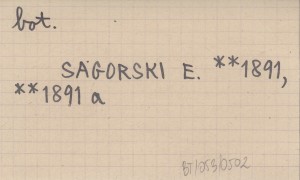 bot.
SAGORSKI E. **1891,
**1891 a
BT/253/0502